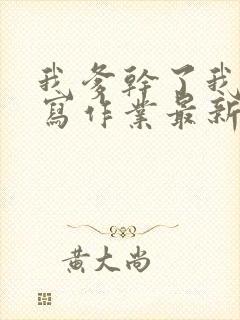 我爹幹了我
寫作業最新
黃大尚